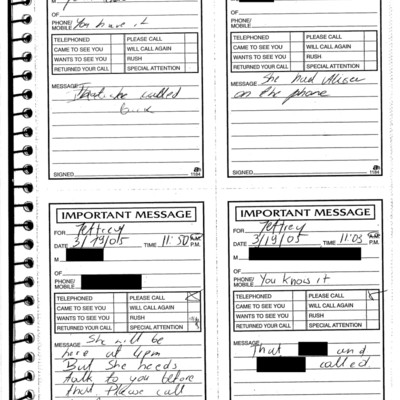 OF
PHONE/
MOBILE You have it
TELEPHONED PLEASE CALL
CAME TO SEE YOU WILL CALL AGAIN
WANTS TO SEE YOU RUSH
RETURNED YOUR CALL SPECIAL ATTENTION
MESSAGE That she called
SIGNED 1184
OF
PHONE/
MOBILE
TELEPHONED PLEASE CALL
CAME TO SEE YOU WILL CALL AGAIN
WANTS TO SEE YOU RUSH
RETURNED YOUR CALL SPECIAL ATTENTION
MESSAGE She had
on the phone
SIGNED 1184
IMPORTANT MESSAGE
FOR Jeffrey
DATE 3/19/05 TIME 11:50 P.M.
M
OF
PHONE/
MOBILE
TELEPHONED PLEASE CALL
CAME TO SEE YOU WILL CALL AGAIN
WANTS TO SEE YOU RUSH
RETURNED YOUR CALL SPECIAL ATTENTION
MESSAGE She will be
here at 4pm
But She needs
talk to you before
that. Please call
IMPORTANT MESSAGE
FOR Jeffrey
DATE 3/19/05 TIME 11:03 P.M.
M
OF
PHONE/
MOBILE You know it
TELEPHONED PLEASE CALL
CAME TO SEE YOU WILL CALL AGAIN
WANTS TO SEE YOU RUSH
RETURNED YOUR CALL SPECIAL ATTENTION
MESSAGE That and
called.